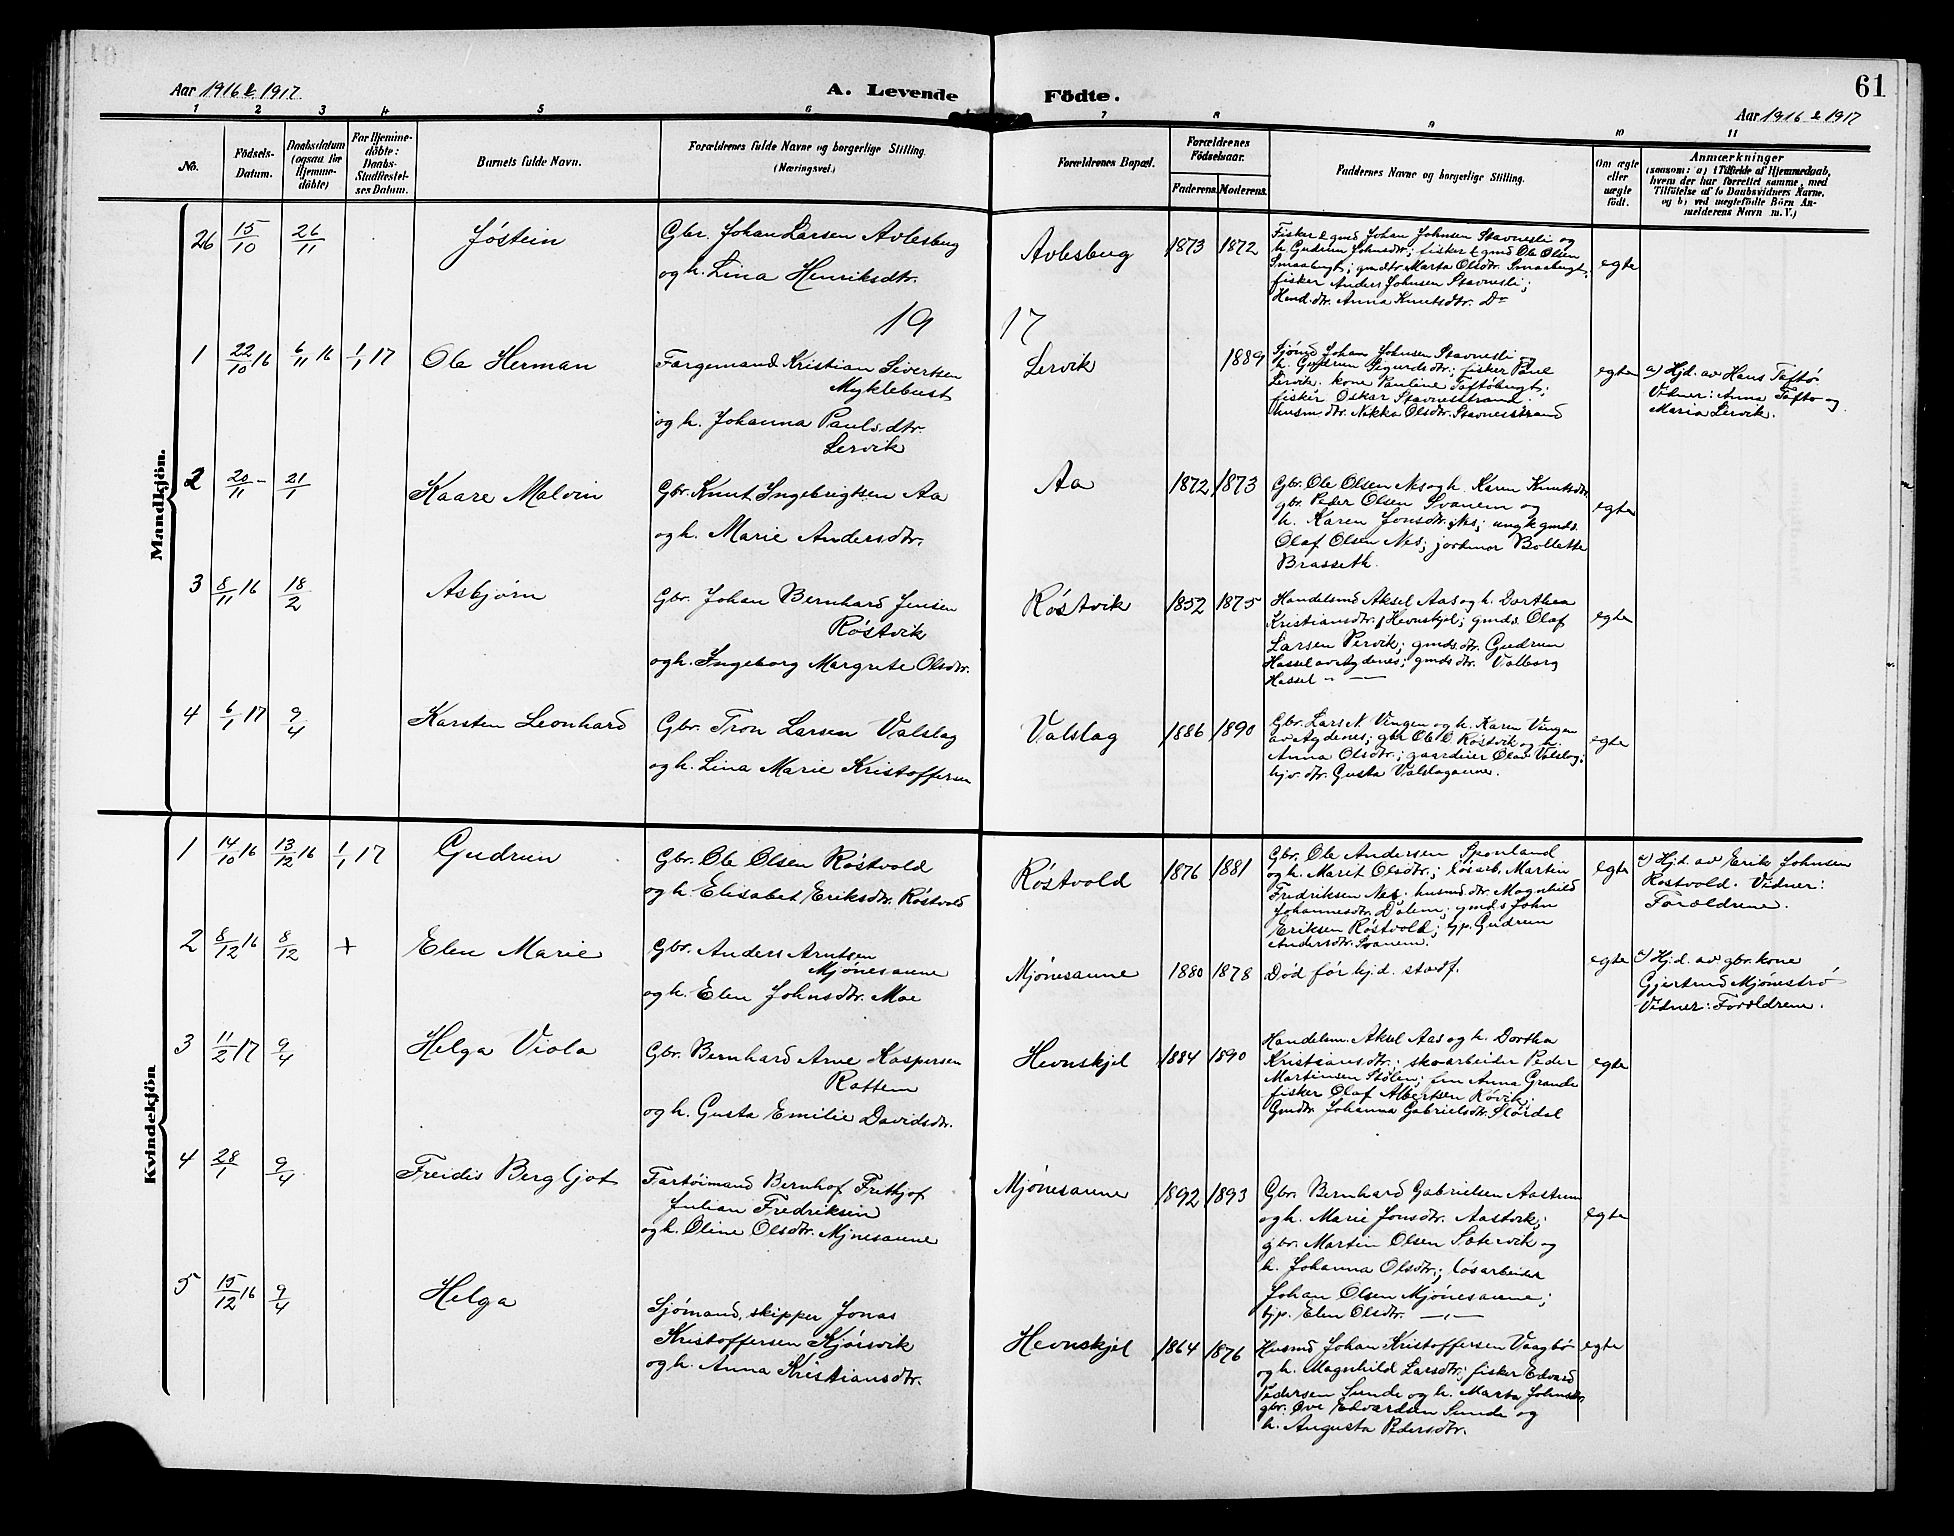 Aar 1916 & 1917
A. Levende
Födte.
61
Aar 1916 & 1917
1 2 3 4 5 6 7 8 9 10 11
No.
Födsels-
Datum.
Daabsdatum
(ogsaa for
Hjemme-
döbte)
For Hjemme-
döbte:
Daabs-
Stadfæstel-
ses Datum.
Barnets fulde Navn.
Forældrenes fulde Navne og borgerlige Stilling.
(Næringsvei.)
Forældrenes Bopæl.
Forældrenes
Födselsaar.
Faderens. Moderens.
Faddernes Navne og borgerlige Stilling.
Om ægte
eller
uægte
födt.
Anmærkninger
(saasom: a) i Tilfælde af Hjemmedaab,
hvem der har forrettet samme, med
Tilföielse af to Daabsvidners Navne,
og b) ved uægtefödte Börn An-
melderens Navn m. V.)
Mandkjön.
26 15/10 26/11 Jóstein
Gbr. Johan Larsen Avlesbug
og h. Lina Henriksdtr.
Avlesbug 1873 1872
Fisker & gmd Johan Johnsen Stavnesli og
h. Gudrun Johnsdtr; fisker & gmd Ole Olsen
Smaabugt; gmdtr. Marta Olsdtr. Smaabugt;
fisker Anders Johnsen Stavnesli;
Husd.dtr. Anna Knutsdtr. Do
egte
19 17
1 22/10 16 6/11 16 1/1 17 Ole Herman
Fargemand Kristian Sivertsen
Myklebust
og h. Johanna Paulsdtr.
Lervik
Lervik 1889
Sjømd Johan Johnsen Stavnesli og
h. Gudrun Sigurdsdtr; fisker Paul
Lervik; kone Pauline Taftöbugt;
fisker Oskar Stavnesstrand.
husm.dtr. Nikka Olsdtr. Stavnesstrand
egte
a) Hjd. av Hans Taftó
Vidner: Anna Taftó og
Maria Lervik.
2 20/11 - 21/1 Kaare Malvin
Gbr. Knut Ingebrigtsen Aa
og h. Marie Andersdtr.
Aa 1872 1873
Gbr. Ole Olsen Nes og h. Karen Knutsdtr.
gbr. Peder Olsen Svanem og
h. Karen Jonsdtr. Nes; ungk gmds.
Olaf Olsen Nes; jordmor Bollette
Brasseth.
egte
3 8/11 16 18/2 Asbjørn
Gbr. Johan Bernhard Jensen
Róstvik
og h. Ingeborg Margrete Olsdtr.
Róstvik 1852 1875
Handelsmd Aksel Aas og h. Dorthea
Kristiansdtr. Hevnskjel; gmds. Olaf
Larsen Vervik; gmds.dtr. Gudrun
Hassel av Agdenes; gmds dtr. Valborg
Hassel - " -
egte
4 6/1 17 9/4 Karsten Leonhard
Gbr. Tron Larsen Valslag
og h. Lina Marie Kristoffersen
Valslag 1886 1890
Gbr. Lars N. Vingen og h. Karen Vingen
av Agdenes; gbr. Ole O. Róstvik og h.
Anna Olsdtr.; gaardeier Olav Valslag;
hjv. dtr. Gusta Valslagaune.
egte
Kvindekjön
1 14/10 16 13/12 16 1/1 17 Gudrun
Gbr. Ole Olsen Róstvold
og h. Elisabet Eriksdtr. Róstvold
Róstvold 1876 1881
Gbr. Ole Andersen Sponland
og h. Marit Olsdtr.; lósarb. Martin
Fredriksen Nes. husmd.dtr. Magnhild
Johannesdtr. Dalem; gmds John
Eriksen Róstvold; tjp. Gudrun
Andersdtr. Svanem.
egte
a) Hjd. av Erik Johnsen
Rostvold. Vidner:
Forældrene.
2 8/12 16 8/12 + Elen Marie
Gbr. Anders Arntsen
Mjónesaune
og h. Elen Johnsdtr. Moe
Mjónesaune 1880 1878 Död för hj.d. stadf.
egte
a) Hjd. av gbr. kone
Gjertrud Mjóneströ
Vidner: Forældrene.
3 11/2 17 9/4 Helga Viola
Gbr. Bernhard Arne Kaspersen
Rottem
og h. Gusta Emilie Davidsdtr.
Hevnskjel 1884 1890
Handelsm. Aksel Aas og h. Dortha
Kristiansdtr.; skoarbeider Peder
Martinsen Stólen; frn Anna Grande
fisker Olaf Albertsen Róvik;
Gmdtr. Johanna Gabrielsdtr. Slórdal
egte
4 28/1 9/4 Freidis Bergljot
Fartöimand Bernhof Fritjof
Julian Fredriksen
og h. Oline Olsdtr. Mjnesaune
Mjónesaune 1892 1893
Gbr. Bernhard Gabrielsen Aastrum
og h. Marie Jonsdtr. Aastvik;
gbr. Martin Olsen Sætervik og
h. Johanna Olsdtr.; lósarbeider
Johan Olsen Mjónesaune;
tjp. Elen Olsdtr. - " -
egte
5 15/12 16 9/4 Helga
Sjömand, skipper Jonas
Kristoffersen Kjórsvik
og h. Anna Kristiansdtr.
Hevnskjel 1864 1876
Husmd Johan Kristoffersen Vaagbö
og h. Magnhild Larsdtr; fisker Edvard
Pedersen Sunde og h. Marta Johnsdtr,
gbr. Ove Edvardsen Sunde og
h. Augusta Pedersdtr.
egte